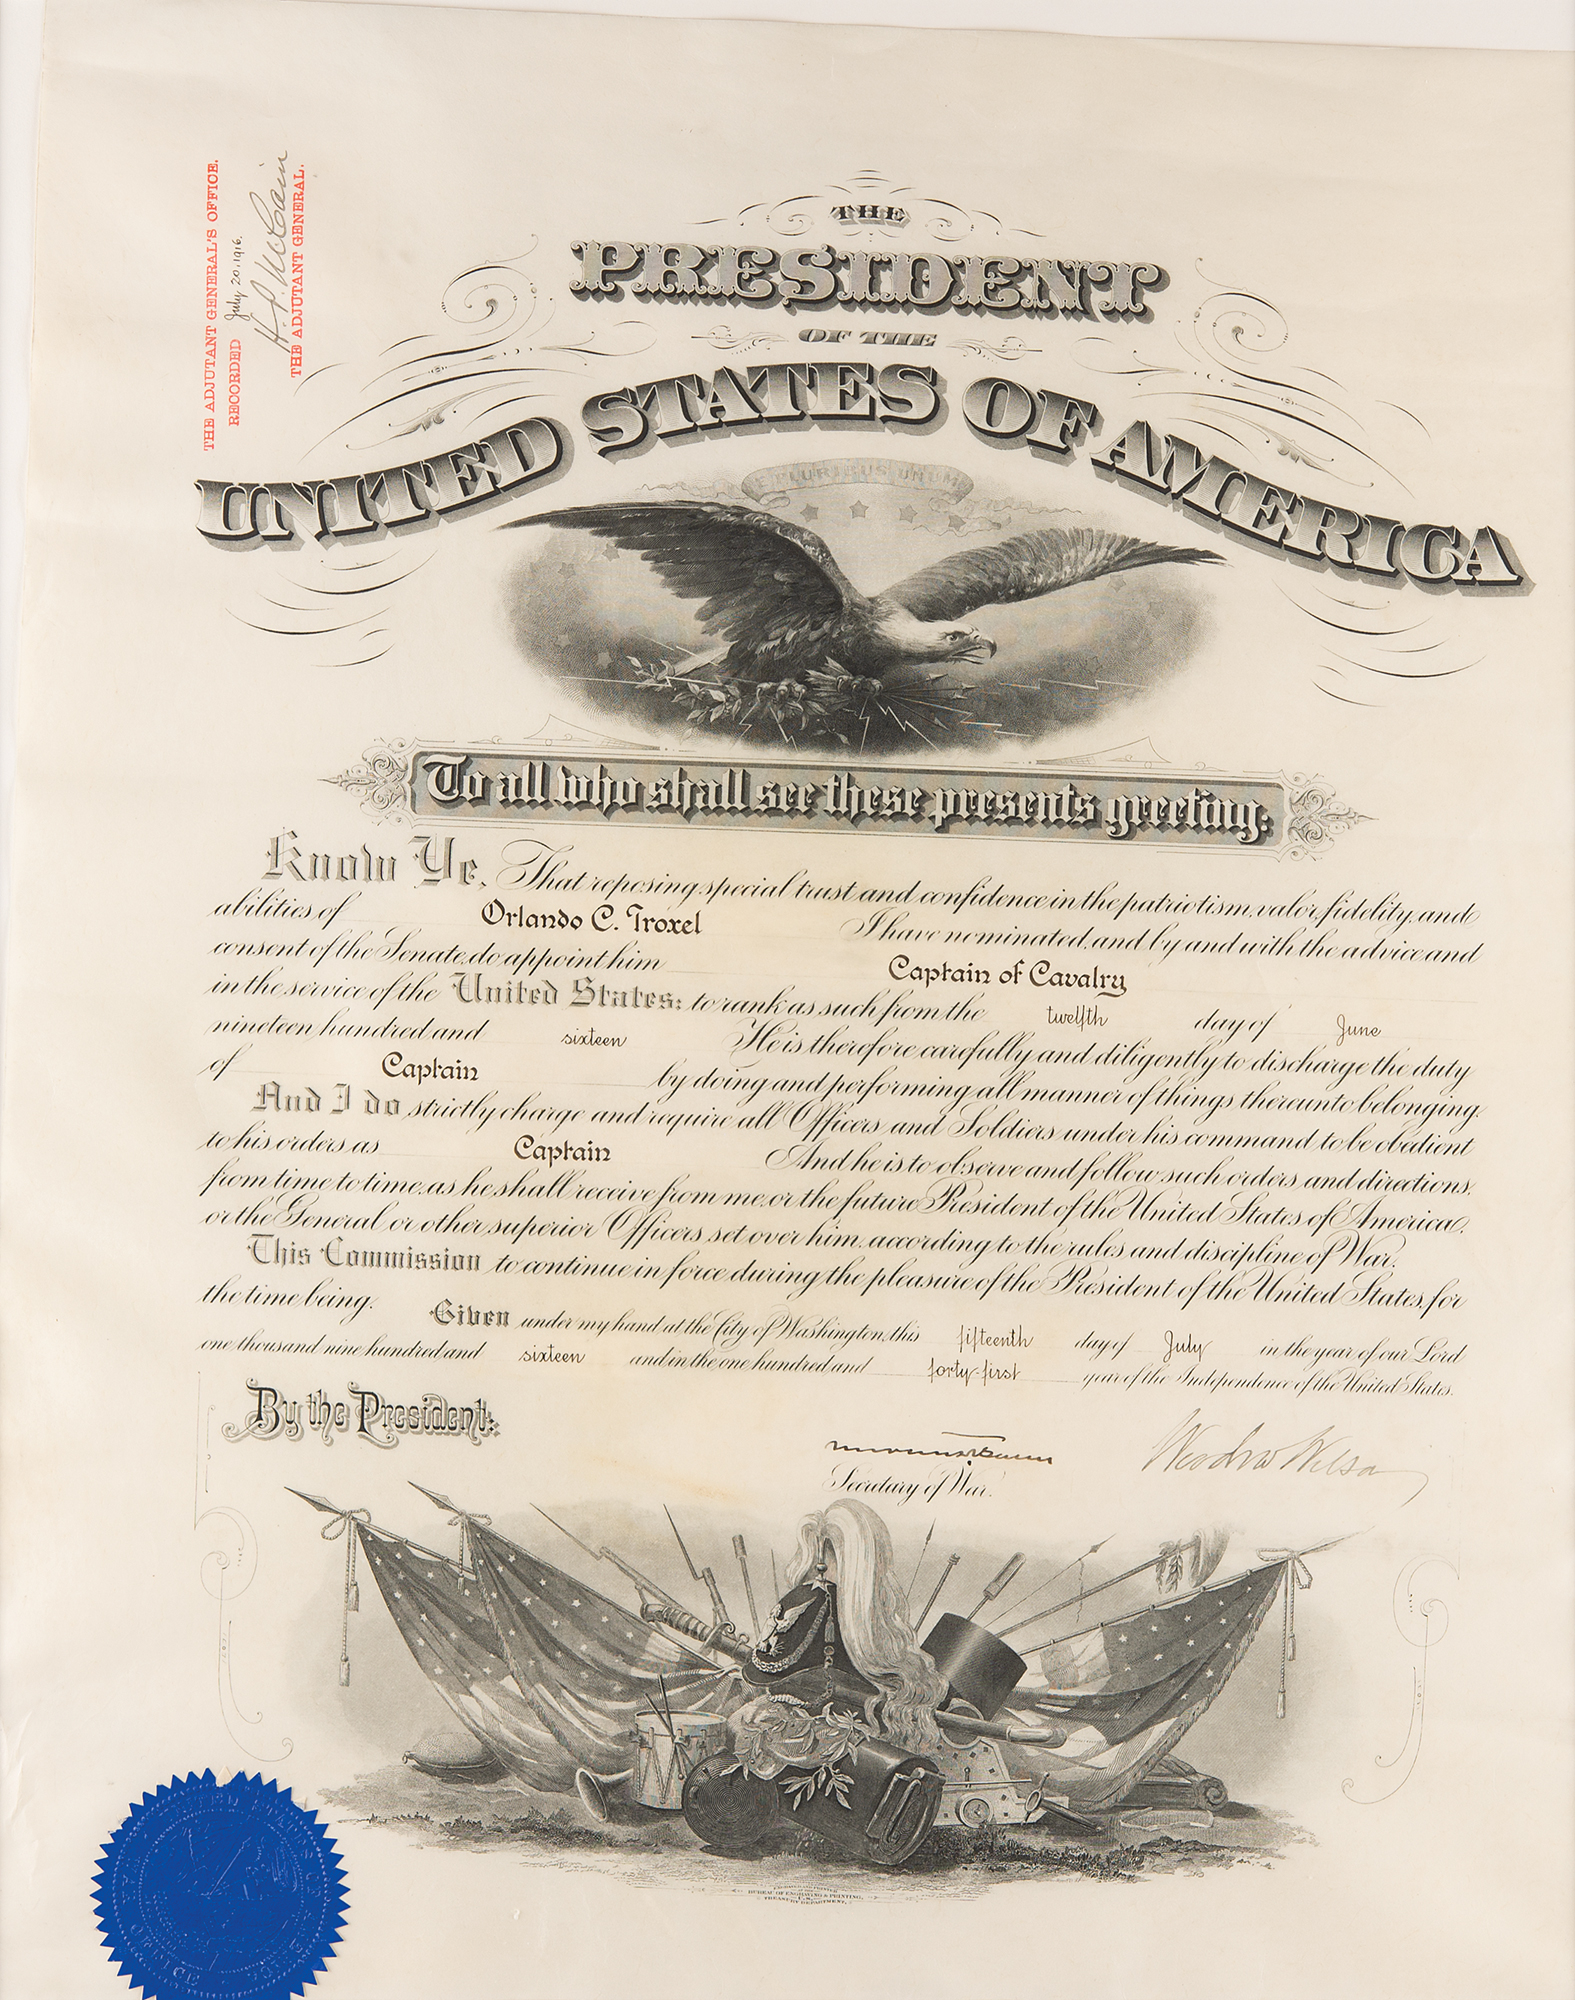 THE ADJUTANT GENERAL'S OFFICE.
RECORDED July 20, 1916.
H. P. McCain
THE ADJUTANT GENERAL.
THE
PRESIDENT
OF THE
UNITED STATES OF AMERICA
E PLURIBUS UNUM
To all who shall see these presents greeting:
Know Ye, That reposing special trust and confidence in the patriotism, valor, fidelity, and
abilities of Orlando C. Troxel I have nominated, and by and with the advice and
consent of the Senate, do appoint him Captain of Cavalry
in the service of the United States: to rank as such from the twelfth day of June
nineteen hundred and sixteen He is therefore carefully and diligently to discharge the duty
of Captain by doing and performing all manner of things thereunto belonging.
And I do strictly charge and require all Officers and Soldiers under his command to be obedient
to his orders as Captain And he is to observe and follow such orders and directions,
from time to time, as he shall receive from me, or the future President of the United States of America,
or the General or other superior Officers set over him, according to the rules and discipline of War.
This Commission to continue in force during the pleasure of the President of the United States, for
the time being.
Given under my hand at the City of Washington, this fifteenth day of July in the year of our Lord
one thousand nine hundred and sixteen and in the one hundred and forty-first year of the Independence of the United States.
By the President:
Woodrow Wilson
Secretary of War.
BUREAU OF ENGRAVING & PRINTING,
TREASURY DEPARTMENT,